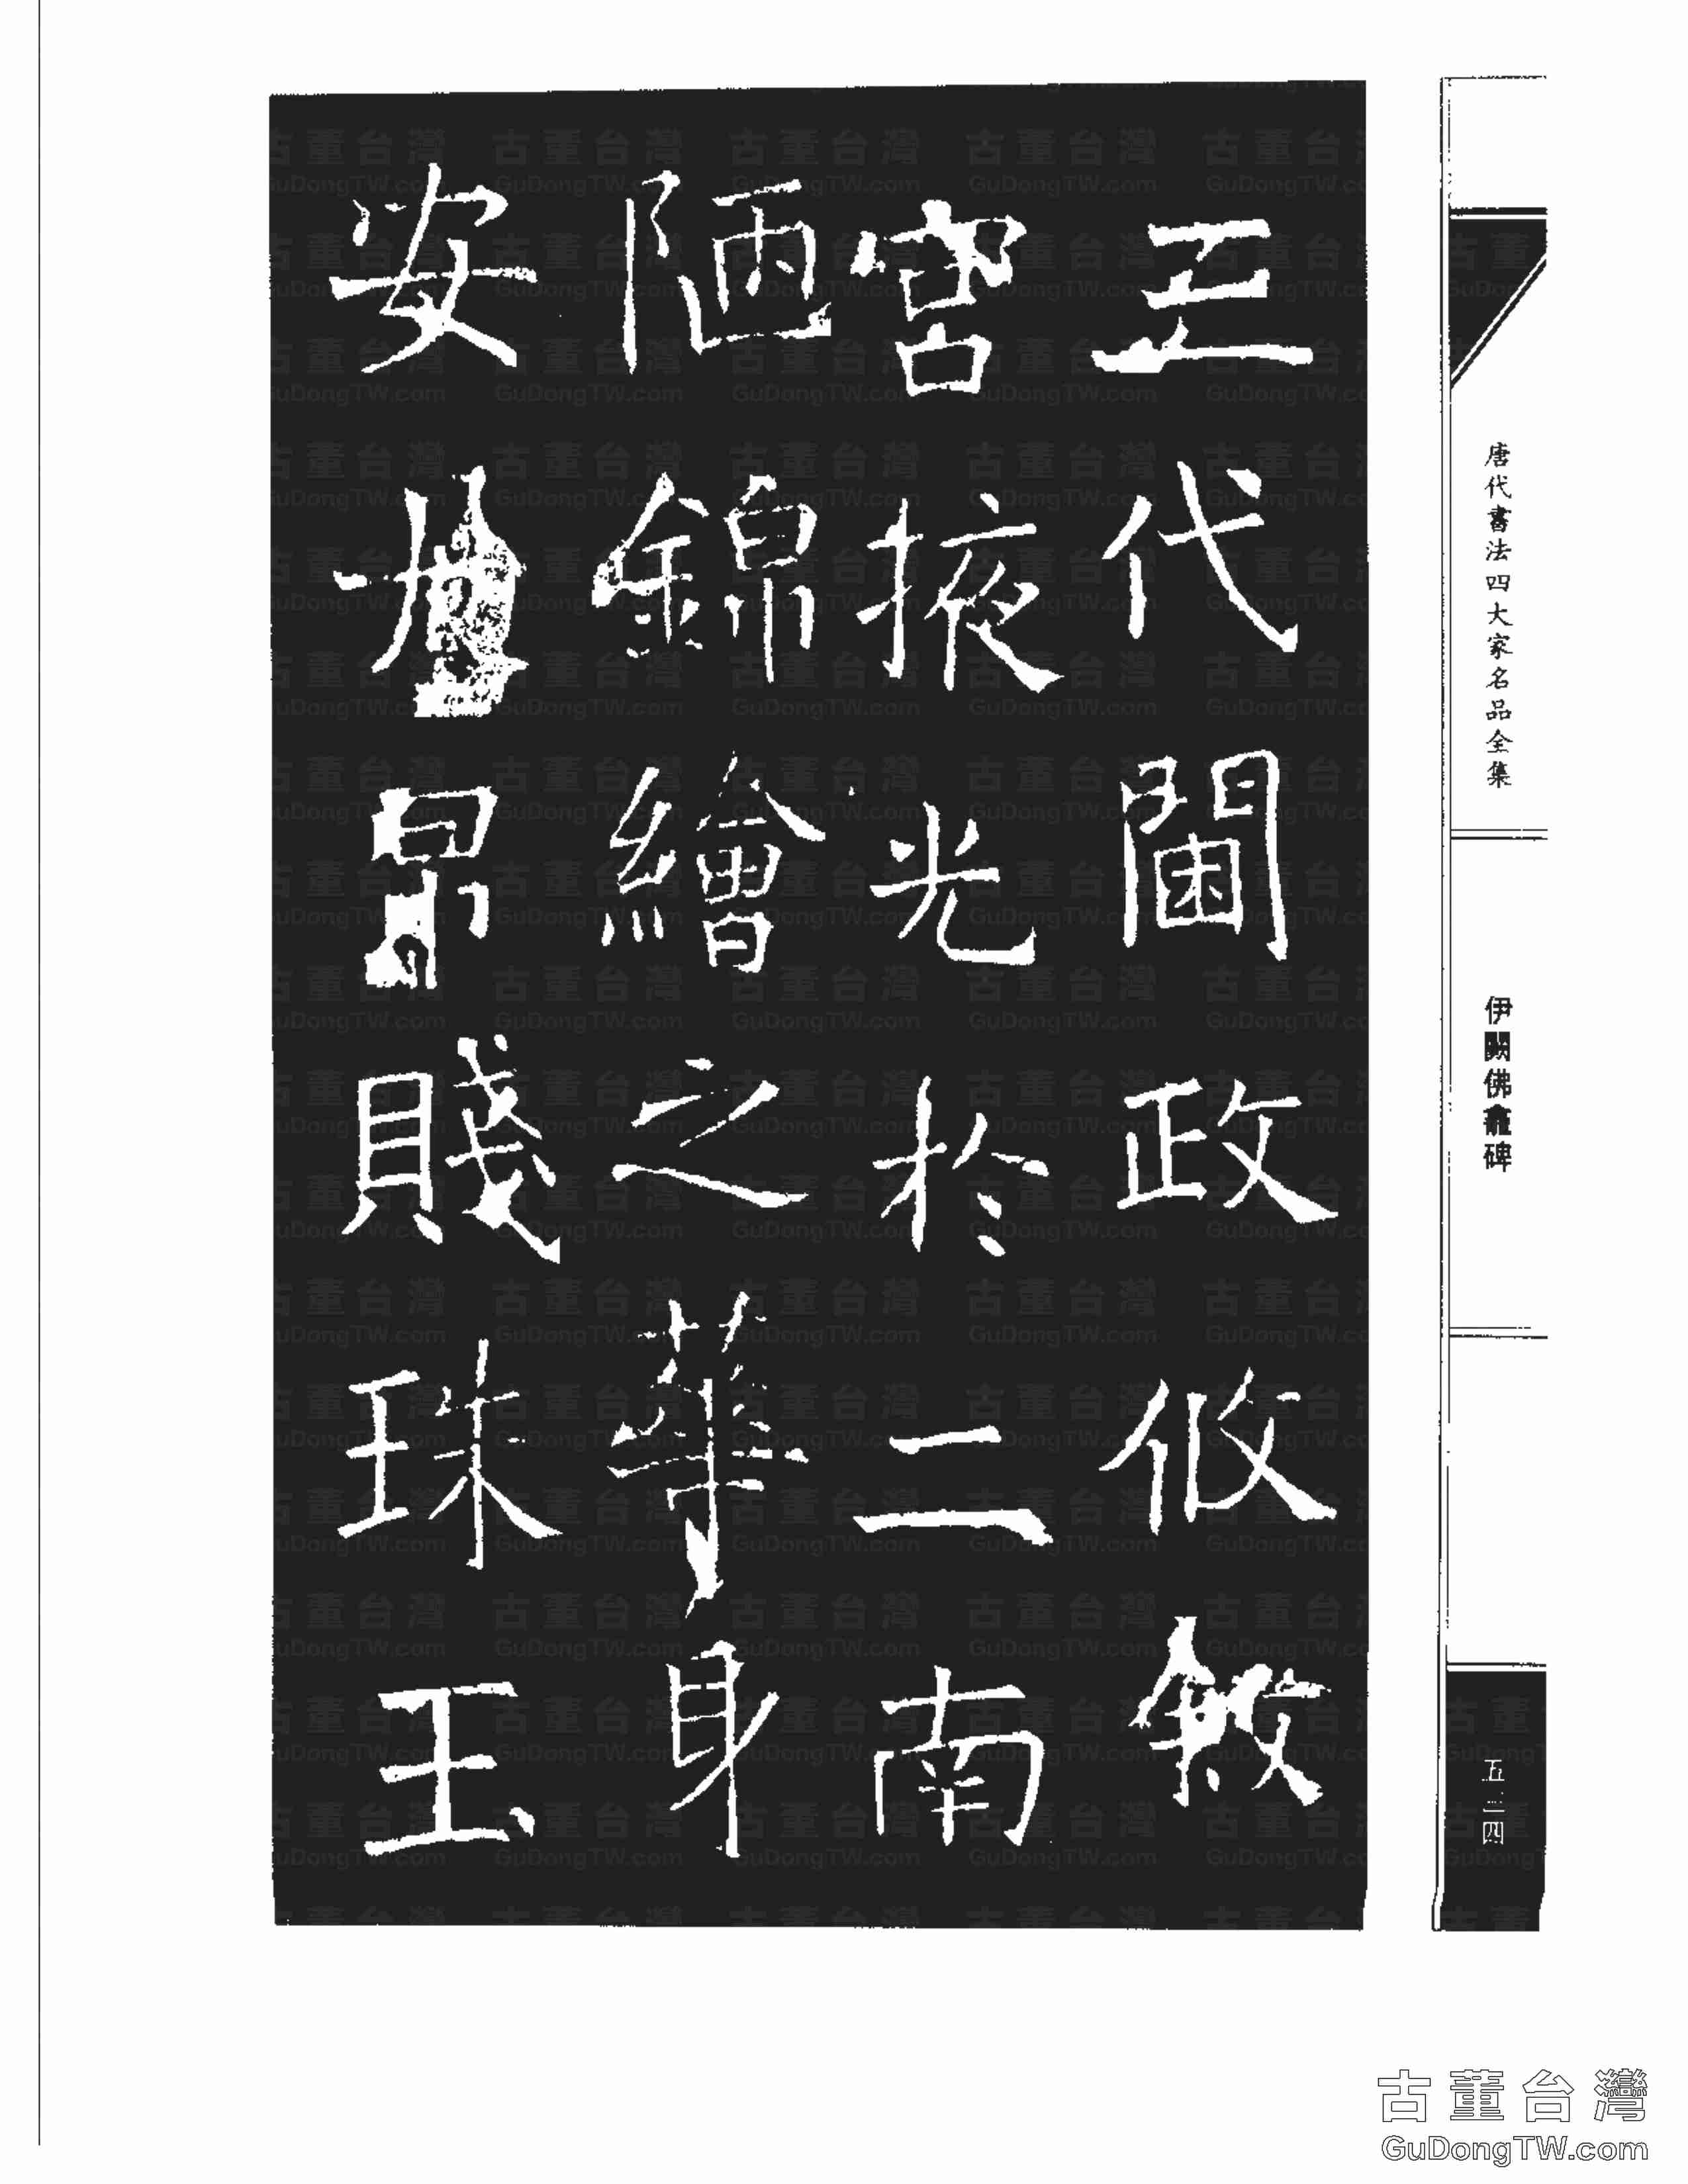 三代閫政攸敘
宮掖光於二南
陋錦繪之華身
安大帛賤珠玉
唐代書法四大家名品全集
伊闕佛龕碑
五三四
古董台灣
GuDongTW.com